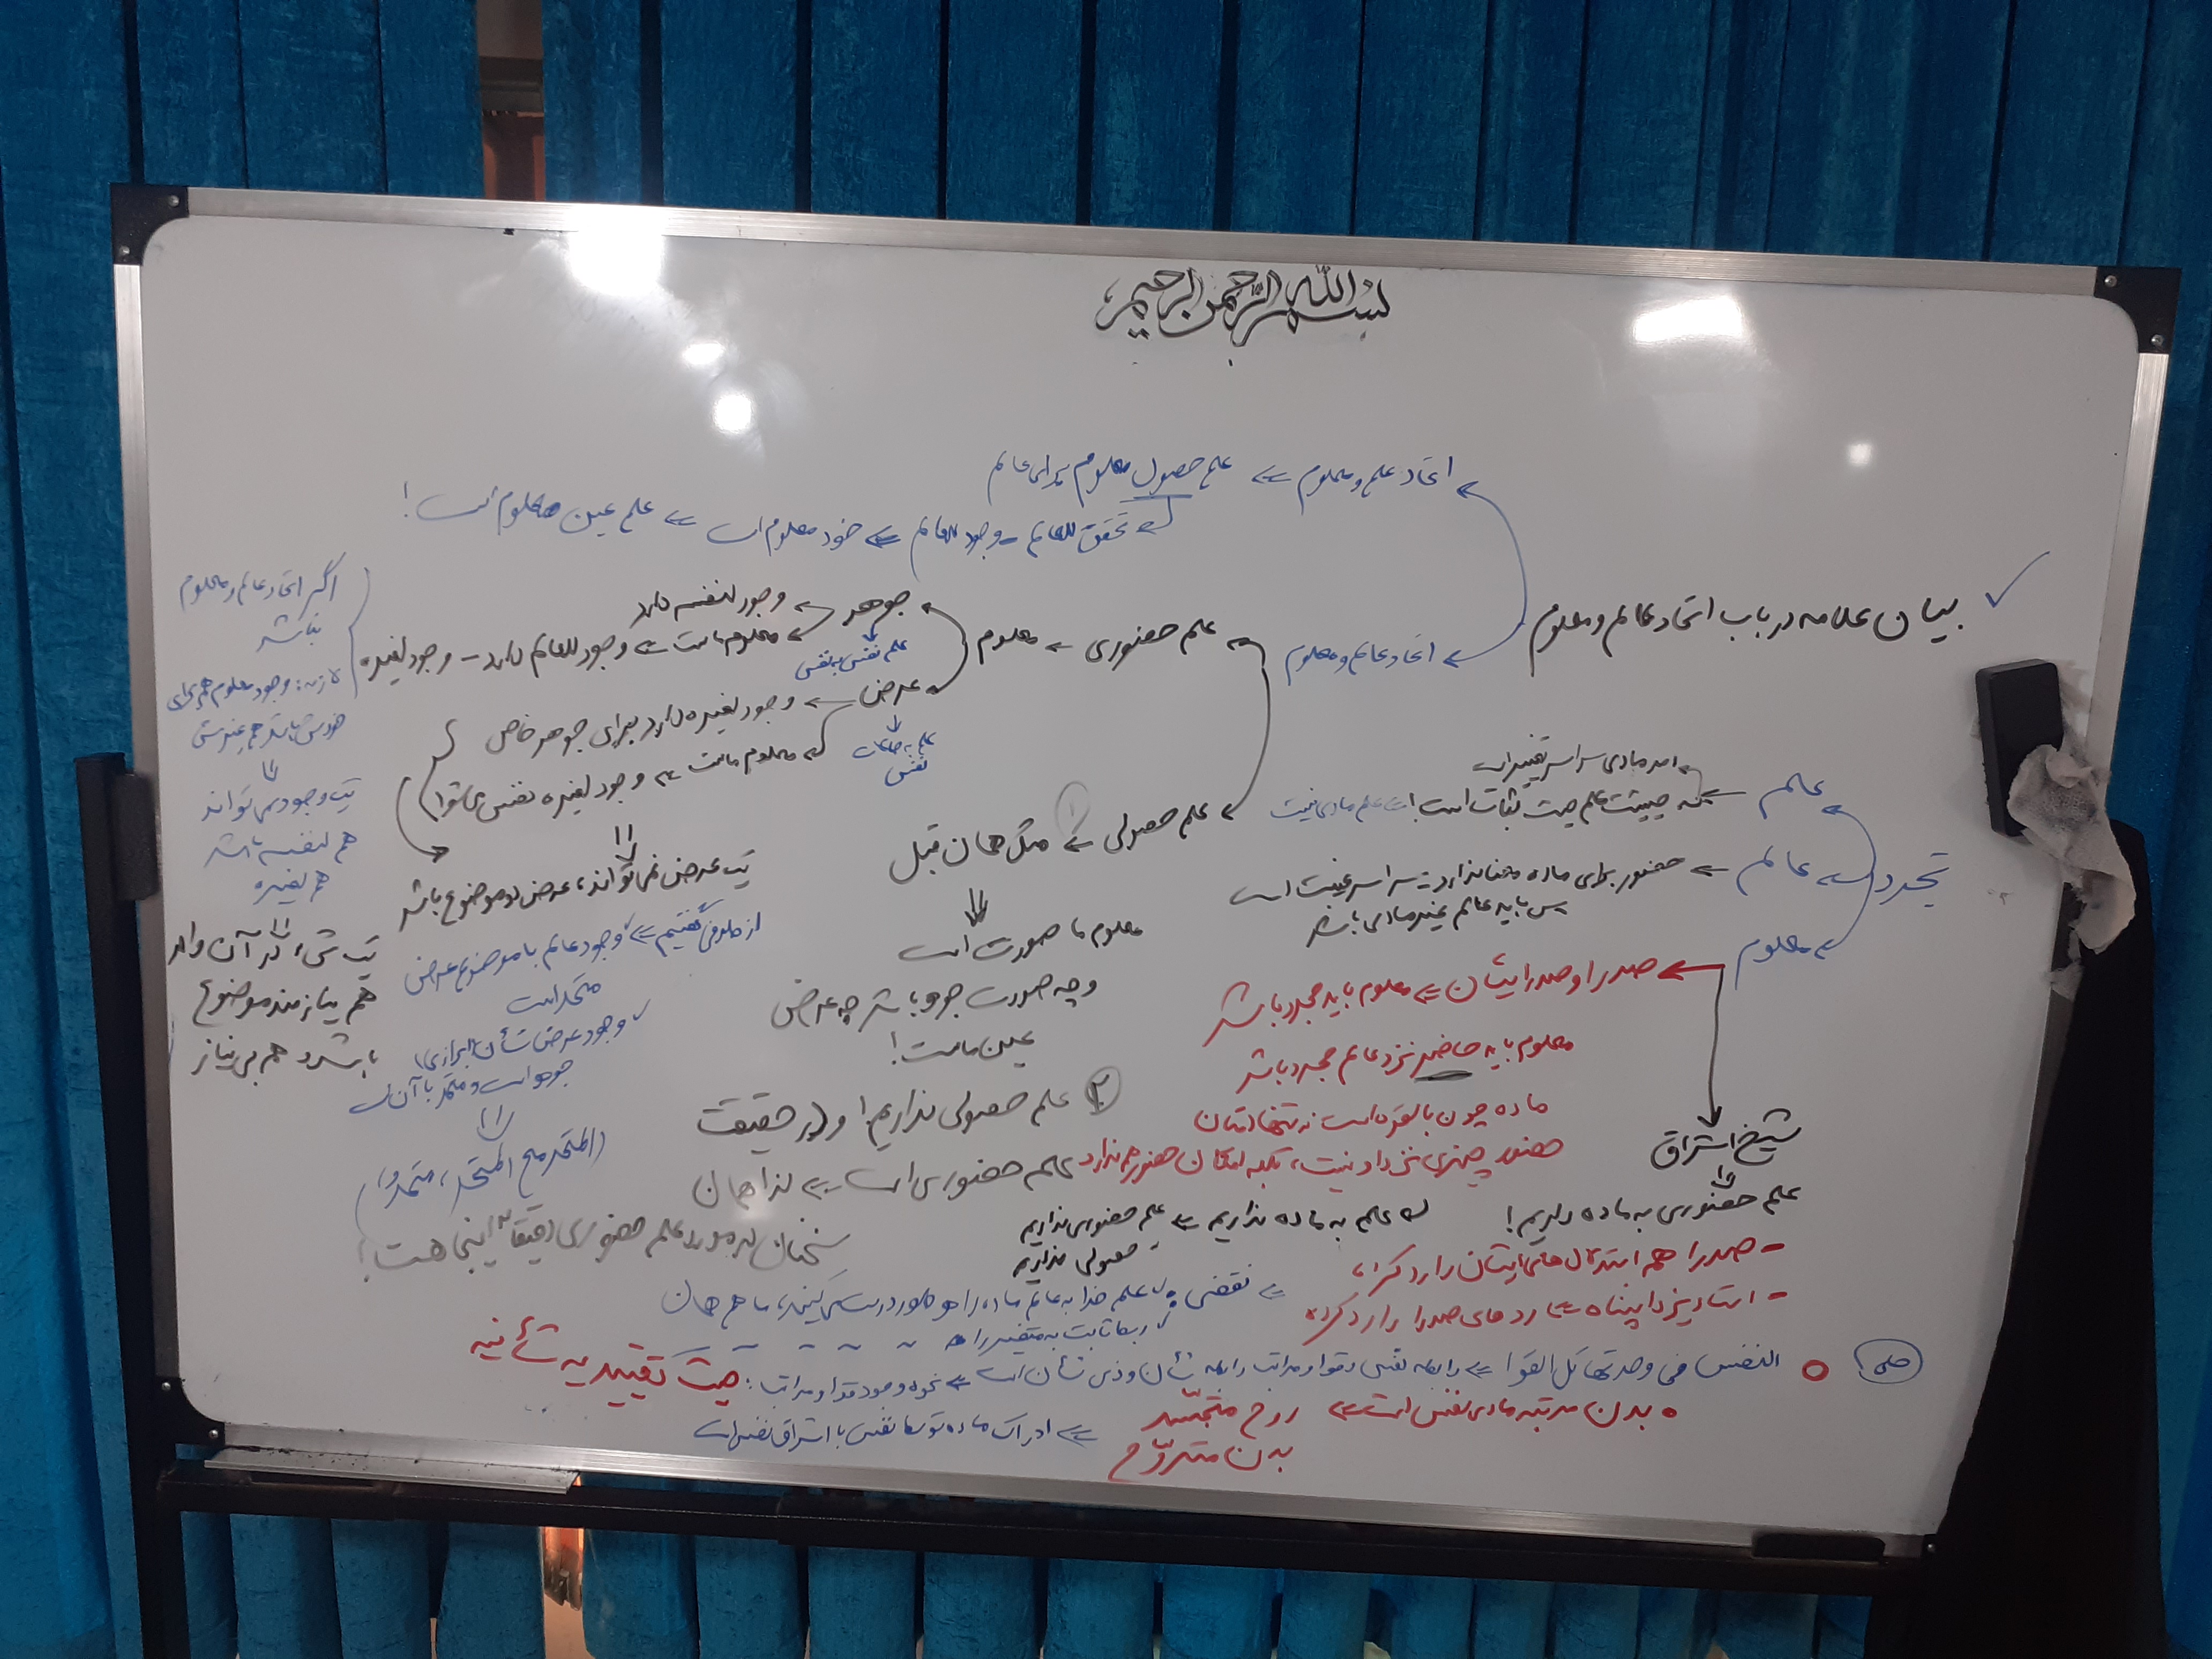 بسم الله الرحمن الرحیم
بیان علامه در باب اتحاد عالم و معلوم
اتحاد علم و معلوم ⇐ علم حصول معلوم برای عالم
تحقق للعالم - وجود للعالم ⇐ خود معلوم است ⇐ علم عین معلوم است!
اتحاد عالم و معلوم
علم حضوری ← معلوم
جوهر
وجود لنفسه دارد
معلوم ماست ⇐ وجود للعالم دارد - وجود لغیره
علم نفس به نفس
عرض ← وجود لغیره دارد برای جوهر خاص
معلوم ماست ⇐ وجود لغیره نفس می‌شود!
علم به حالات
نفس
اگر اتحاد عالم و معلوم
نباشد
لازمه: وجود معلوم هم برای
خودش باشد هم غیرش
⇓
یک وجود نمی‌تواند
هم لنفسه باشد
هم لغیره
یک شیء در آن واحد
هم نیازمند موضوع
باشد و هم بی‌نیاز
یک عرض نمی‌تواند، عرض دو موضوع باشد
از طرفی گفتیم ⇐ ✓ وجود عالم با موضوع عرض
متحد است
✓ وجود عرض شأن (ابرازی)
جوهر است و متحد با آن است
⇓
(المتحد مع المتحد، متحد)
علم حصولی ⇐ ۱ مثل همان قبل
⇓
معلوم ما صورت است
و چه صورت جوهر باشد چه عرض
عین ماست!
۲ علم حصولی نداریم! و در حقیقت
علم حضوری است ⇐ لذا همان
سخنان در مورد علم حضوری دقیقاً اینجا هست!
تجرد
علم
امر مادی سراسر تغییر است
حیثیت علم حیث ثبات است! ⇐ علم مادی نیست
عالم ← حضور برای ماده معنا ندارد ⇐ سراسر غیبت است
پس باید عالم غیر مادی باشد
معلوم
صدرا و صدراییان ⇐ معلوم باید مجرد باشد
معلوم باید حاضر نزد عالم مجرد باشد
ماده چون بالقوه است نه تنها امکان
حضور چیزی نزد او نیست، بلکه امکان حضور هم ندارد
شیخ اشراق
⇓
علم حضوری به ماده داریم!
علم به ماده نداریم ⇐ علم حضوری نداریم
حصولی نداریم
- صدرا همه استدلال‌های ایشان را رد کرده،
- استاد یزدان‌پناه ⇐ ردهای صدرا را رد کرده
⇐ نقضی: ✓ علم خدا به عالم ماده را هر طور درست می‌کنید، ما هم همان
✓ ربط ثابت به متغیر را
حلی!
النفس فی وحدتها کل القوا ⇐ رابطه نفس و قوا و مراتب رابطه شأن و ذی شأن است ⇐ نحوه وجود قوا و مراتب: حیث تقییدیه شأنیه
بدن مرتبه مادی نفس است ⇐ روح متجسّد
بدن متروّح
⇐ ادراک ماده توسط نفس با اشراق نفس است